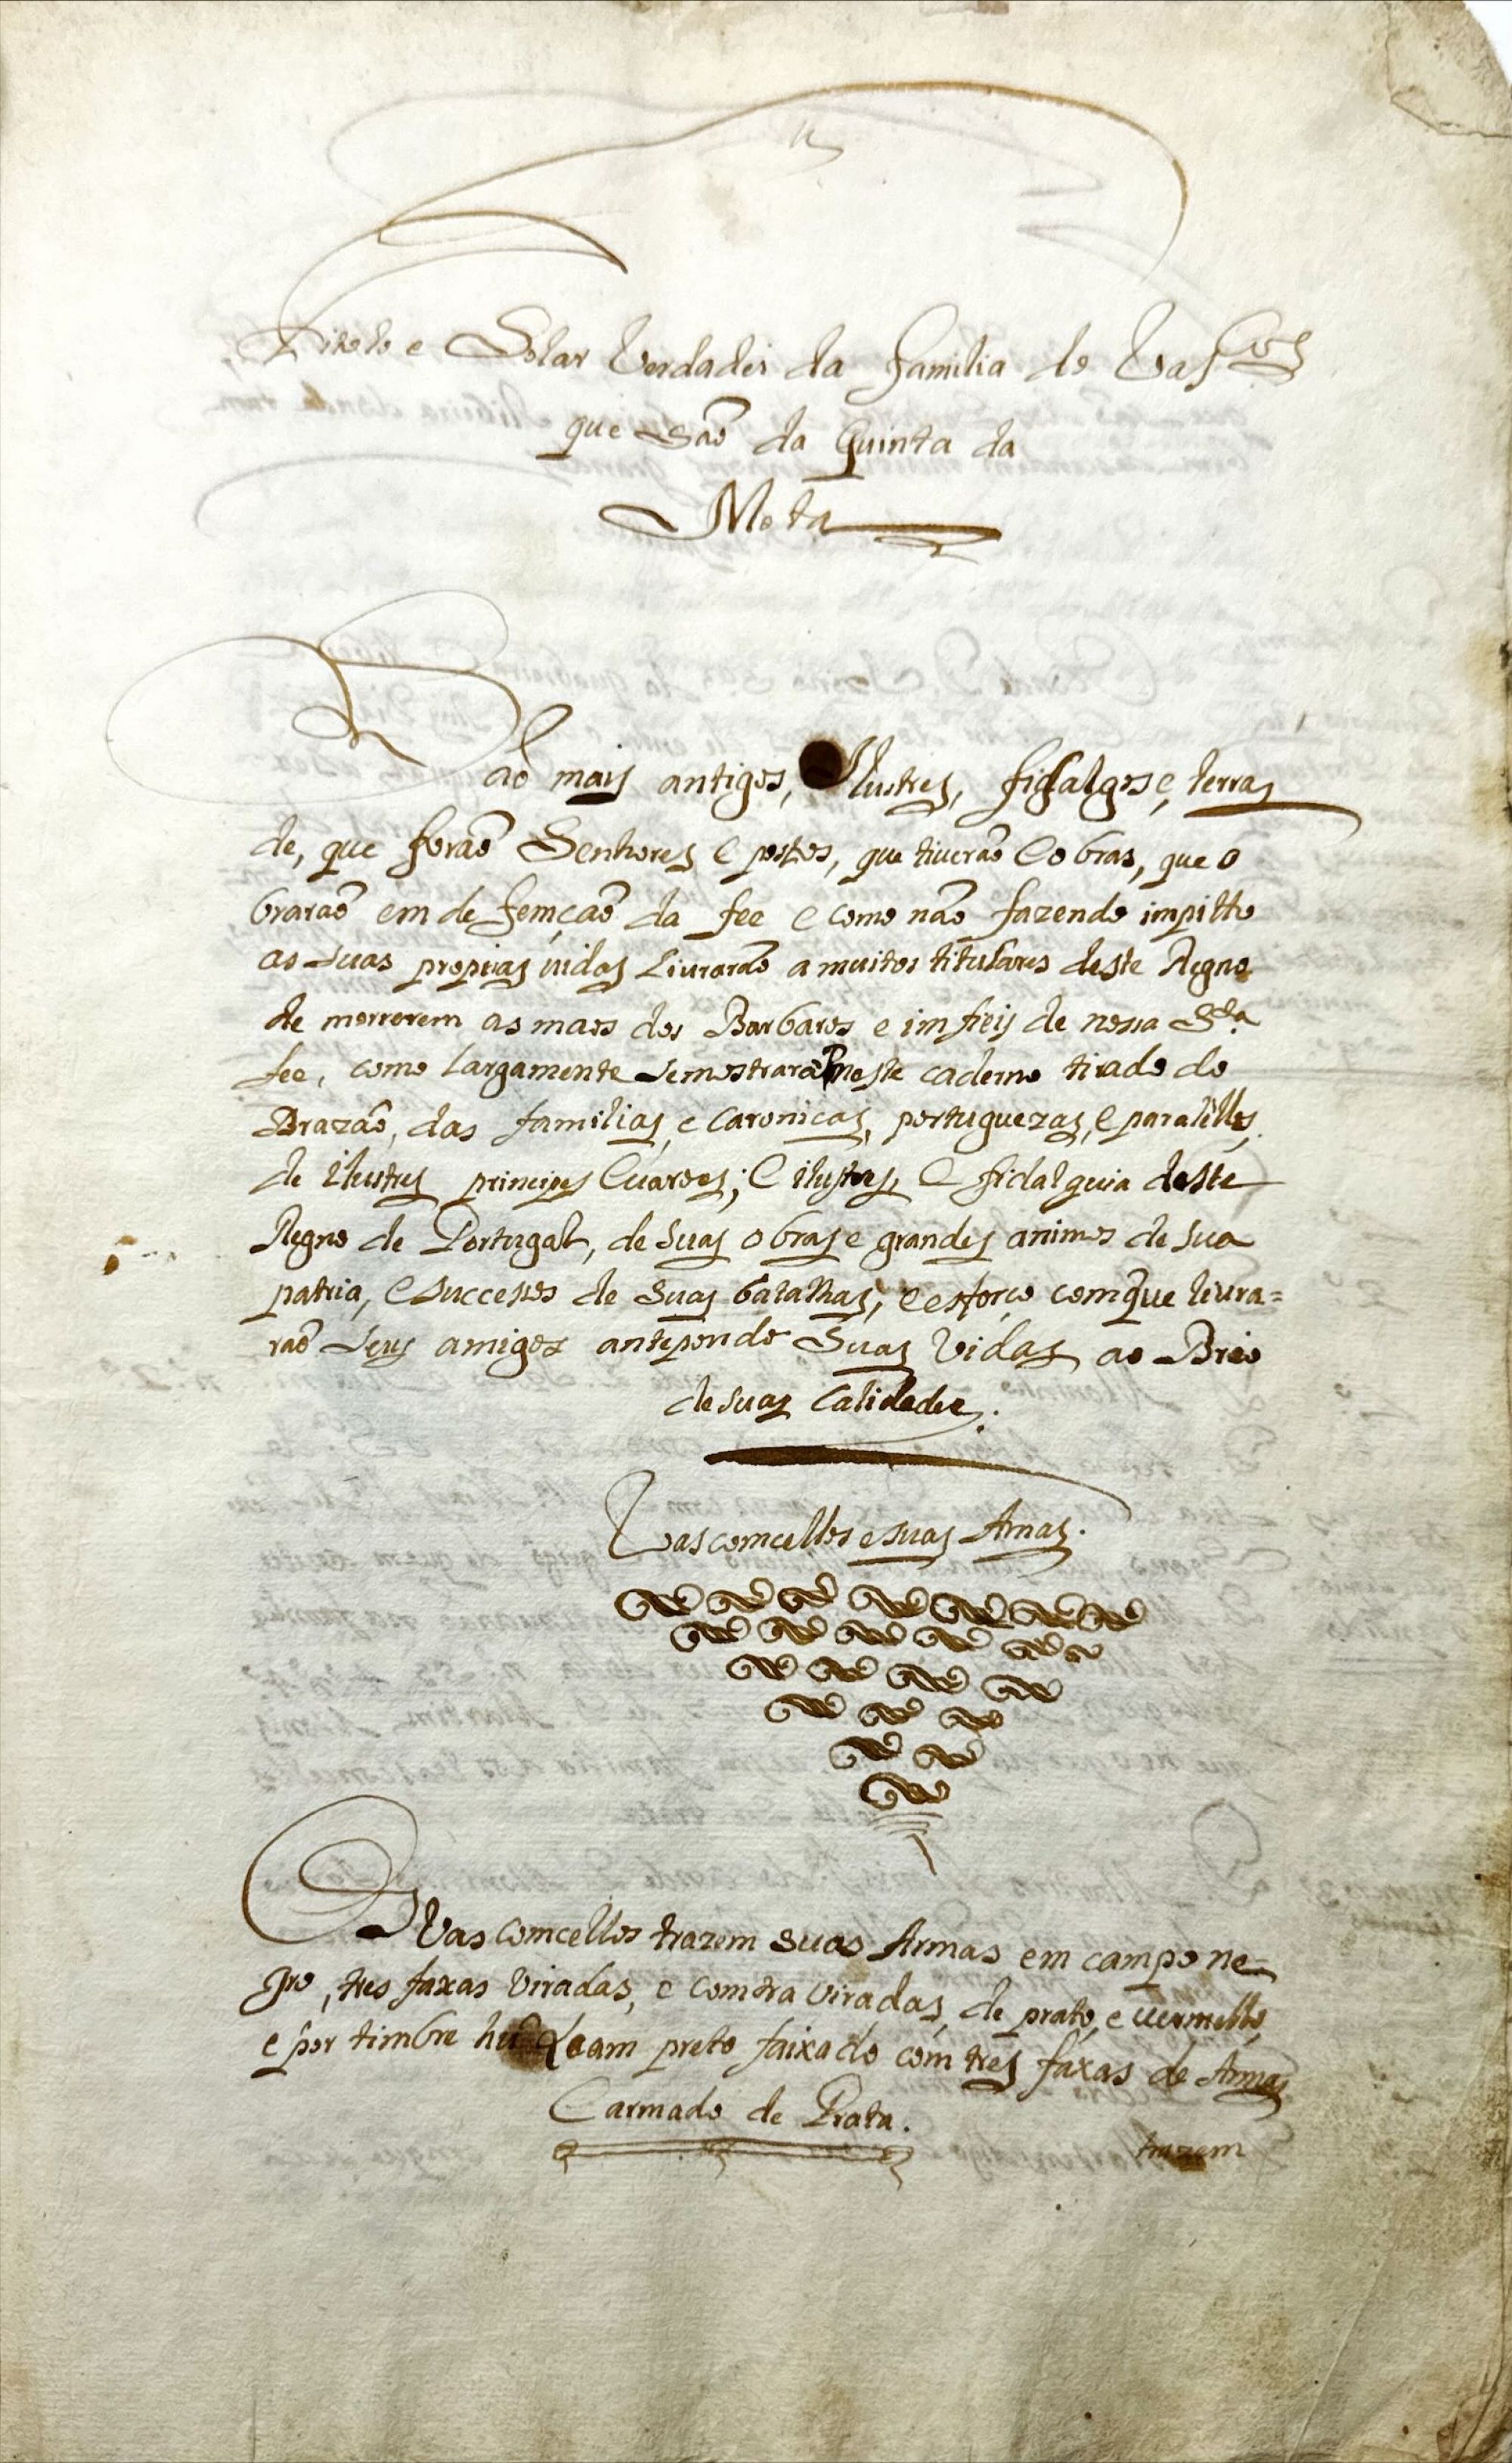 Titolo e Solar Verdadei da familia de Vas^cos
que são da Quinta da
Mota
São mais antigos, Ilustres, fidalgos e, terras
de, que forão Senhores e postos, que tiverão e obras, que o
brarão em de femção da fee e como não fazendo
as suas propias vidas Livrarão a muitos titulares deste Regno
de morrerem as maos dos Barbaros e imfieis de nossa S^ta
fee, como Largamente se mostrará neste caderno tirado do
Brazão, das familias, e Caronicas, portuguezas, e
de ilustres principes e ilustres, e fidalguia deste
Regno de Portugal, de suas obras e grandes animos de sua
patria, e sucessos de suas batalhas, e esforço com que livra=
rão seus amigos antepondo Suas Vidas ao Brio
de suas Calidades.
Vascomcellos e suas Armas.
Os Vascomcellos trazem suas Armas em campo ne
gro, tres faxas viradas, e comtra viradas, de prata, e vermelho,
e por timbre hũ Leam preto faixado com tres faxas de Armas
e armado de Prata.
trazem